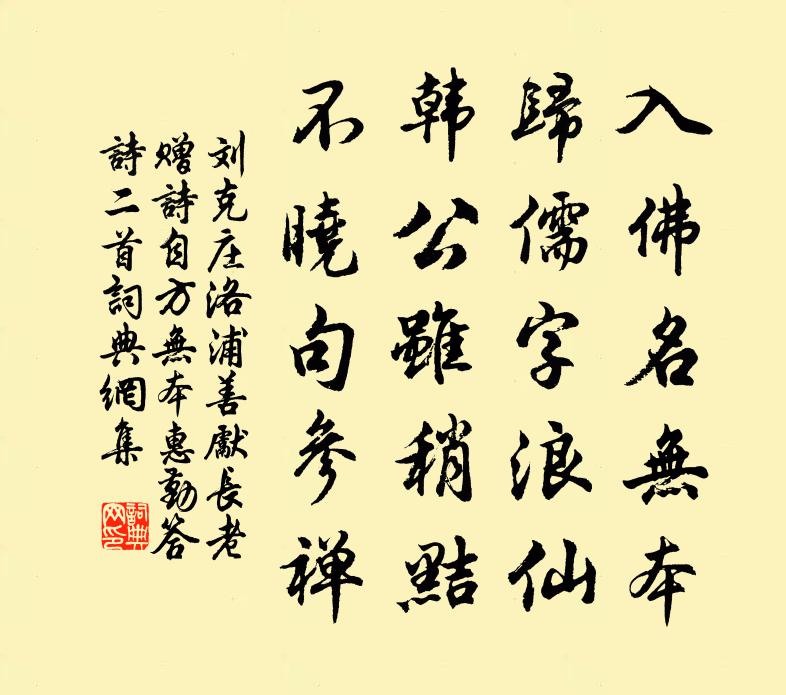 入佛名無本
歸儒字浪仙
韩公雖稍黠
不曉句參禅
刘克庄洛浦善獻長老
赠詩自方無本惠勤答
詩二首詞典網集
詞典网印